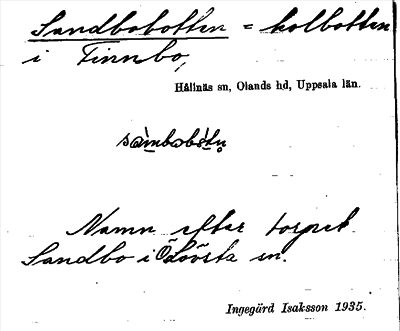 Sandbobotten = kolbotten
i Finnbo,
Hållnäs sn, Olands hd, Uppsala län.
Namn efter torpet
Sandbo i Ö Lövsta sn.
Ingegärd Isaksson 1935.